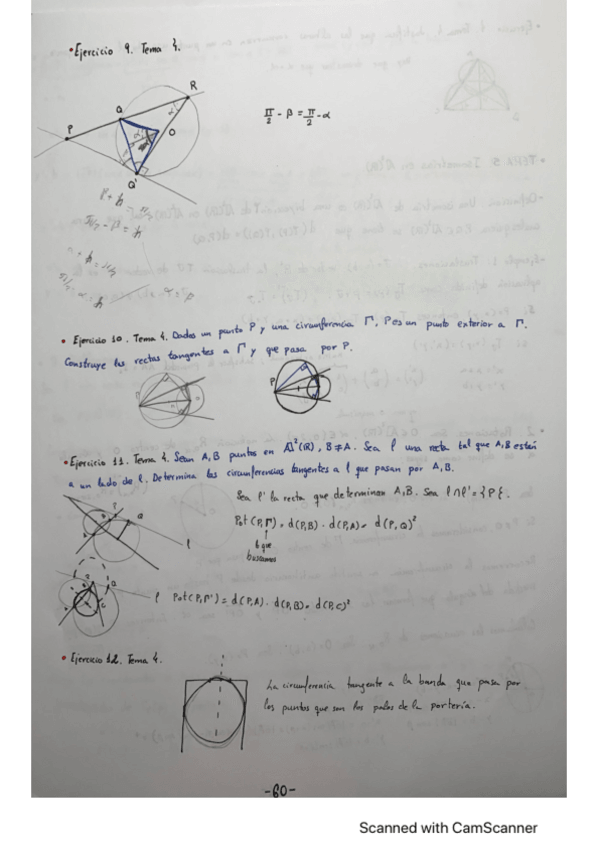 • Ejercicio 9. Tema 4.
R
Q
P
O
α
Q'
π/2 - β = π/2 - α
• Ejercicio 10. Tema 4. Dados un punto P y una circunferencia Γ, P es un punto exterior a Γ.
Construye las rectas tangentes a Γ y que pasa por P.
P
• Ejercicio 11. Tema 4. Sean A, B puntos en A²(ℝ), B≠A. Sea l una recta tal que A, B están
a un lado de l. Determina las circunferencias tangentes a l que pasan por A, B.
Sea l' la recta que determinan A, B. Sea l ∩ l' = {P}.
Pot (P, Γ) = d(P,B) · d(P,A) = d(P,Q)²
↑
la que
buscamos
P
Q
l
Q
l
Pot(P, Γ') = d(P,A) · d(P,B) = d(P,C)²
• Ejercicio 12. Tema 4.
La circunferencia tangente a la banda que pasa por
los puntos que son los palos de la portería.
-60-
Scanned with CamScanner